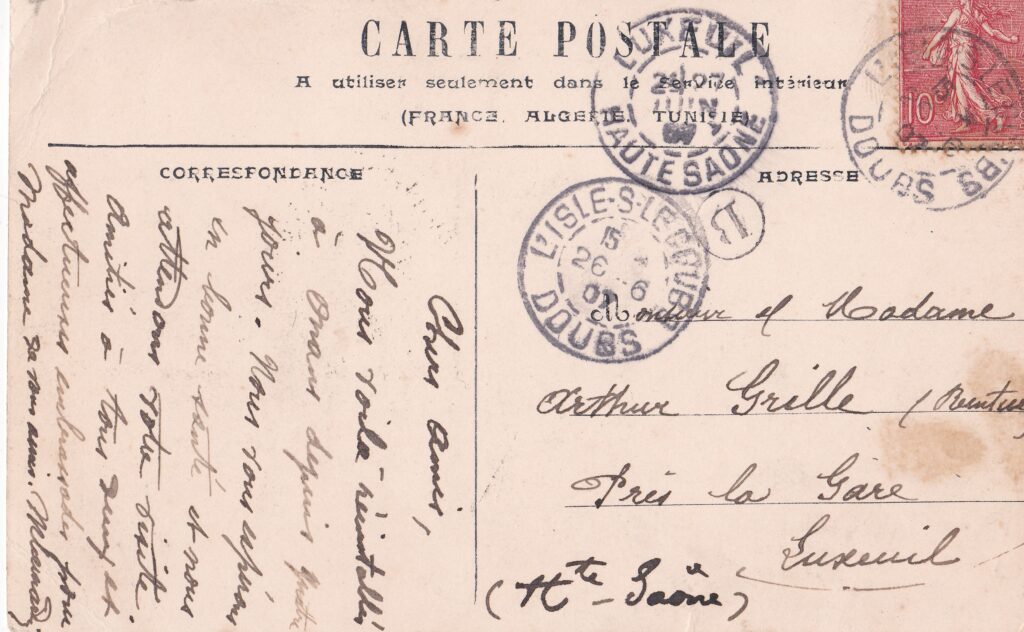 CARTE POSTALE
A utiliser seulement dans le Service intérieur
(FRANCE, ALGERIE, TUNISIE)
CORRESPONDANCE
ADRESSE
LUXEUIL
JUIN
HAUTE SAONE
10
DOUBS
L'ISLE-S-LE-DOUBS
5
26 6
DOUBS
B
Chers amis,
Nous voilà réinstallés
à Onans depuis quatre
jours. Nous vous espérons
en bonne santé et nous
attendons votre visite
Amitiés à tous deux et
affectueuses embrassades pour
Madame de vos amis.
Monsieur et Madame
Arthur Grille (Rentier
Près la Gare
Luxeuil
(Hte-Saône)